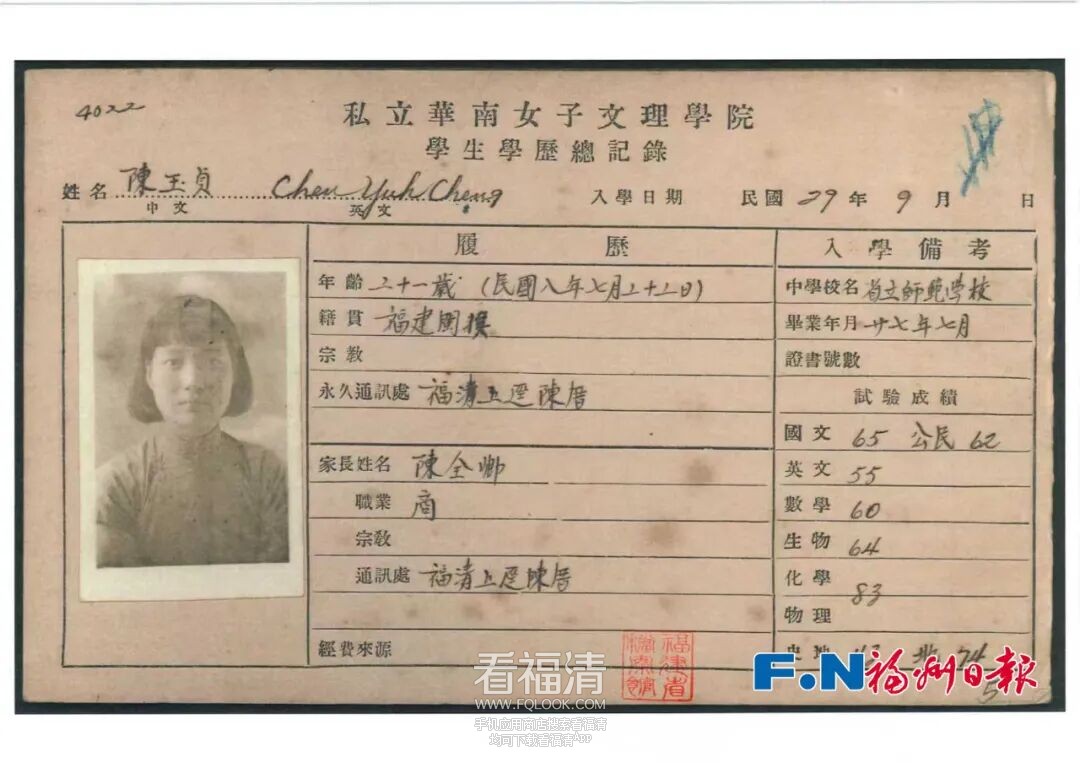 4022
私立華南女子文理學院
學生學歷總記錄
姓名 陳玉貞 Chen Yuh Cheng 入學日期 民國 29 年 9 月 日
中文 英文
履歷 入學備考
年齡 二十一歲 (民國八年七月二十二日) 中學校名 省立師範學校
籍貫 福建閩 畢業年月 廿七年七月
宗教 證書號數
永久通訊處 福清上 陳厝 試驗成績
國文 65 公民 62
家長姓名 陳全卿 英文 55
職業 商 數學 60
宗教 生物 64
通訊處 福清上 陳厝 化學 83
物理
經費來源 史地 地 74
福建省檔案館
看福清
WWW.FQLOOK.COM
手机应用商店搜索看福清
均可下载看福清App
F.N福州日報
5